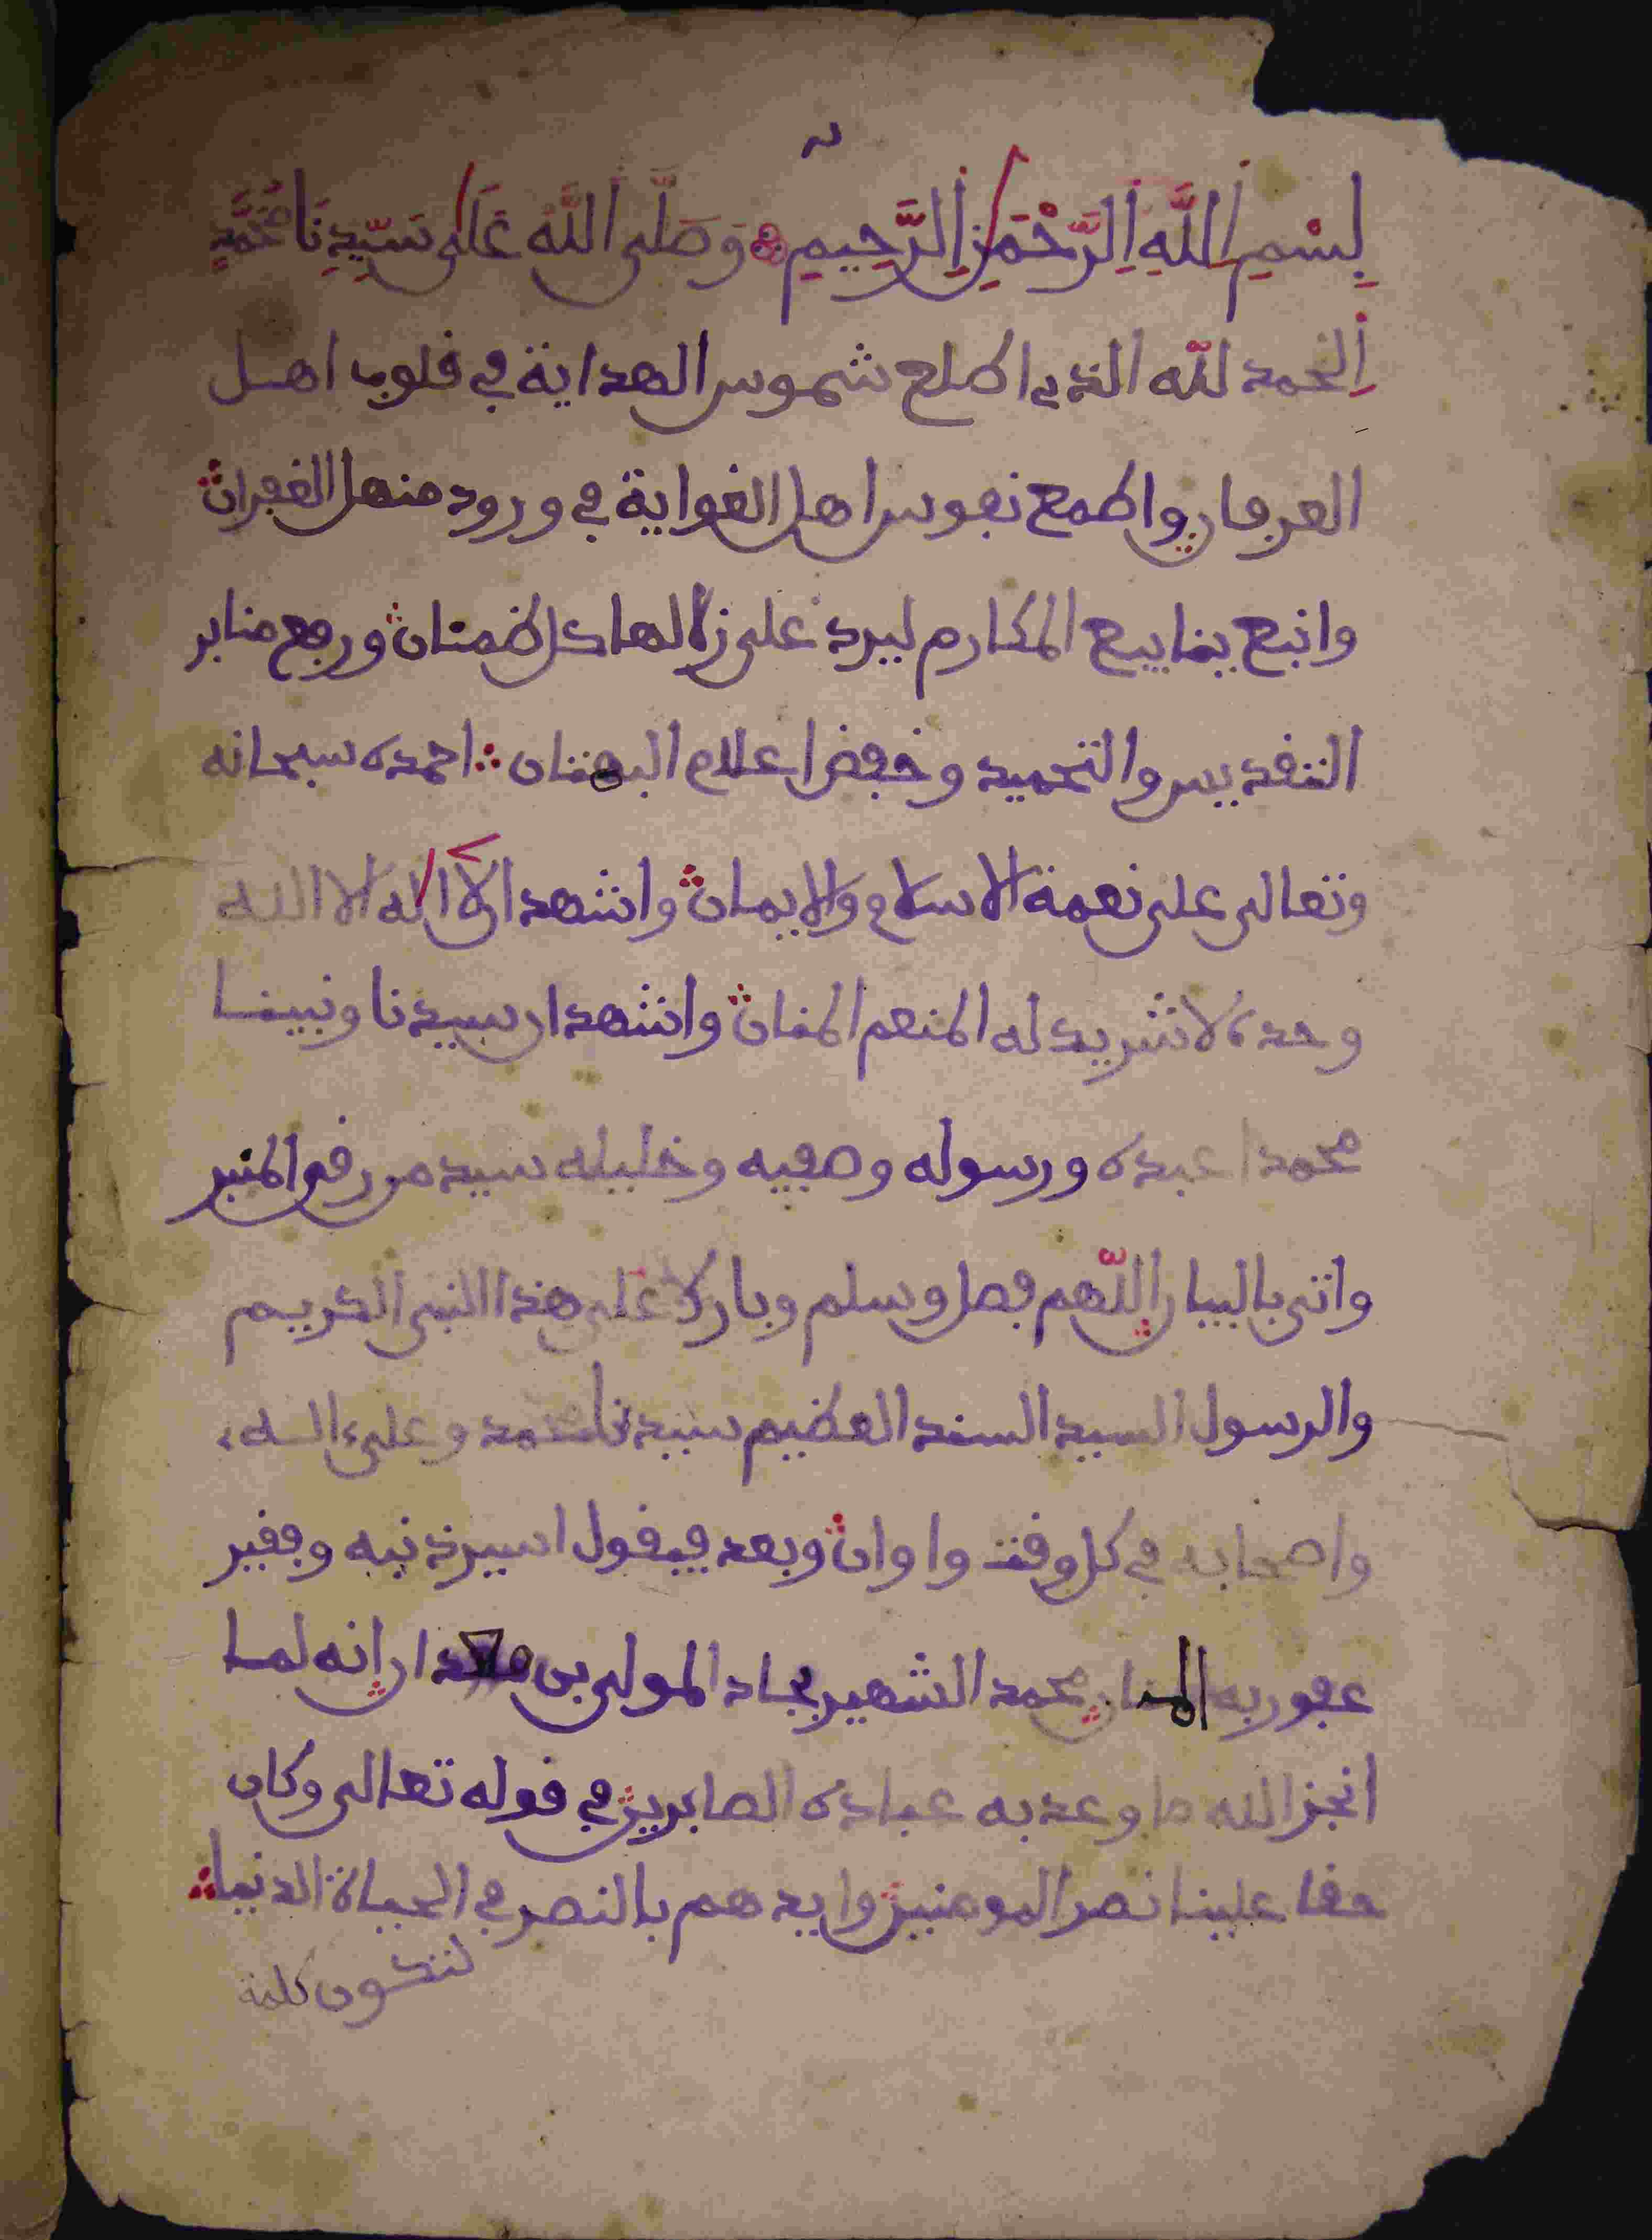 بِسْمِ اللَّهِ الرَّحْمَنِ الرَّحِيمِ وَصَلَّى اللَّهُ عَلَى سَيِّدِنَا مُحَمَّدٍ
الحمد لله الذي اطلع شموس الهداية في قلوب اهل
العرفان واطمع نفوس اهل الغواية في ورود منهل الغفران
وانبع ينابيع المكارم ليرد على زلالها كل ظمئان ورفع منابر
التقديس والتحميد وخفض اعلام البهتان احمده سبحانه
وتعالى على نعمة الاسلام والايمان واشهد ان لا اله الا الله
وحده لا شريك له المنعم المنان واشهد ان سيدنا ونبينا
محمدا عبده ورسوله وصفيه وخليله سيد من رقى المنبر
واتى بالبيان اللهم فصل وسلم وبارك على هذا النبي الكريم
والرسول السيد السند العظيم سيدنا محمد وعلى اله
واصحابه في كل وقت واوان وبعد فيقول اسير ذنبه وفقير
عفو ربه المنان محمد الشهير بجاد المولى بن انه لما
انجز الله ما وعد به عباده الصابرين في قوله تعالى وكان
حقا علينا نصر المومنين وايدهم بالنصر في الحياة الدنيا
لتكون كلمة